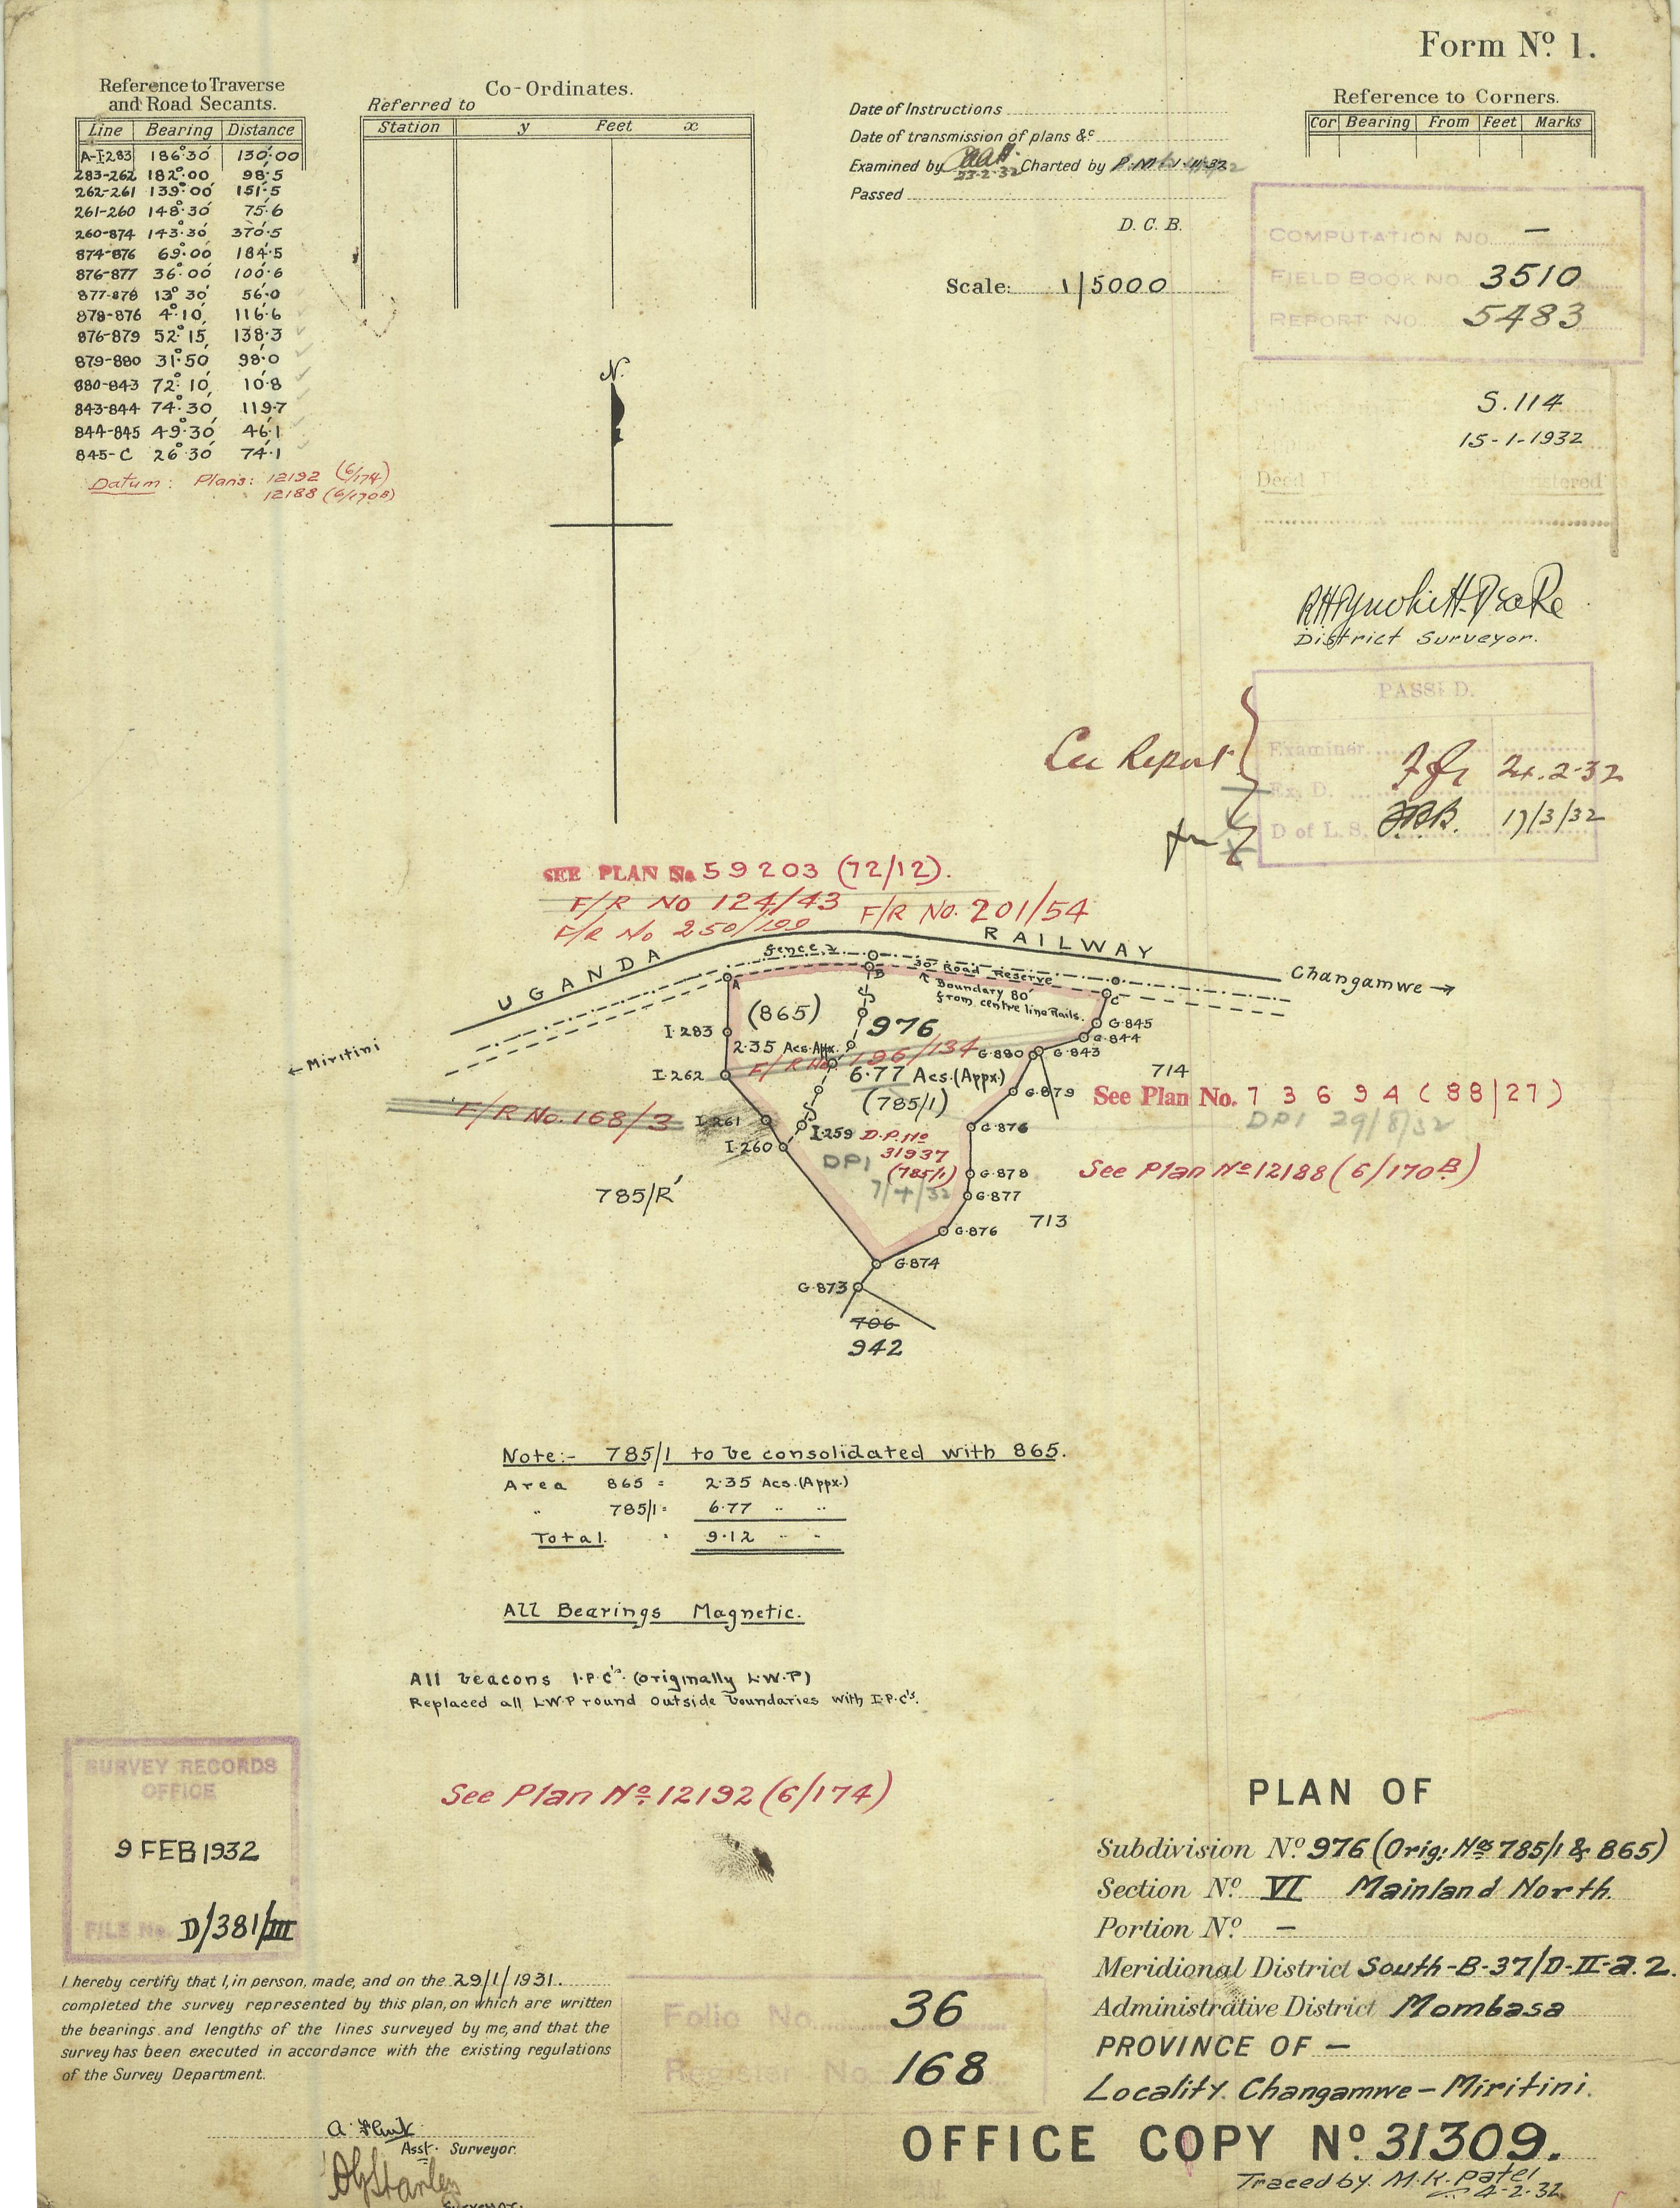 Form Nº 1.
Reference to Traverse
and Road Secants.
Line Bearing Distance
A-I.283 186°30' 130·00
283-262 182°00' 98·5
262-261 139°00' 151·5
261-260 148°30' 75·6
260-874 143°30' 370·5
874-876 69°00' 184·5
876-877 36°00' 100·6
877-878 13°30' 56·0
878-876 4°10' 116·6
876-879 52°15' 138·3
879-880 31°50' 98·0
880-843 72°10' 10·8
843-844 74°30' 119·7
844-845 49°30' 46·1
845-C 26°30' 74·1
Datum: Plans: 12192 (6/174)
12188 (6/170B)
Co-Ordinates.
Referred to
Station y Feet x
Date of Instructions
Date of transmission of plans &c
Examined by 23-2-32 Charted by
Passed
D. C. B.
Scale: 1/5000
Reference to Corners.
Cor Bearing From Feet Marks
COMPUTATION NO. —
FIELD BOOK NO. 3510
REPORT NO. 5483
S.114
15-1-1932
Deed Registered
District Surveyor.
PASSED.
See Report
Examiner 24.2.32
Ex. D.
D of L.S. 17/3/32
N.
SEE PLAN No 59203 (72/12).
F/R NO 124/43 F/R NO. 201/54
F/R No 250/199
UGANDA RAILWAY
fence
30' Road Reserve
Boundary 80'
from centre line Rails.
Changamwe →
← Miritini
A
B
C
(865)
976
I.283
2·35 Acs. Appx.
F/R No 196/134
I.262
6·77 Acs. (Appx.)
(785/1)
G.845
G.844
G.843
G.880
G.879
714
See Plan No. 73694 (88/27)
DPI 29/8/52
F/R No. 168/3
I.261
I.259
I.260
D.P. No
31937
(785/1)
DPI
7/4/32
G.876
G.878
G.877
G.876
See Plan Nº 12188 (6/170B)
785/R
713
G.874
G.873
706
942
Note:- 785/1 to be consolidated with 865.
Area 865 = 2·35 Acs. (Appx.)
" 785/1 = 6·77 " "
Total " 9·12 " "
All Bearings Magnetic.
All beacons I.P.C's. (originally L.W.P)
Replaced all L.W.P round outside boundaries with I.P.C's.
See Plan Nº 12192 (6/174)
SURVEY RECORDS
OFFICE
9 FEB 1932
FILE No. D/381/III
I hereby certify that I, in person, made, and on the 29/1/1931.
completed the survey represented by this plan, on which are written
the bearings and lengths of the lines surveyed by me, and that the
survey has been executed in accordance with the existing regulations
of the Survey Department.
Asst. Surveyor.
Surveyor.
Folio No. 36
Register No. 168
PLAN OF
Subdivision Nº 976 (Orig: Nos 785/1 & 865)
Section Nº VI Mainland North.
Portion Nº —
Meridional District South-B-37/D-II-a.2.
Administrative District Mombasa
PROVINCE OF —
Locality. Changamwe – Miritini.
OFFICE COPY Nº 31309.
Traced by M.K. Patel
4-2-32